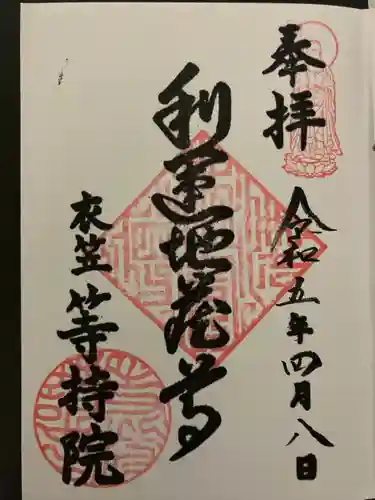 奉拝
令和五年四月八日
利運地蔵尊
衣笠
等持院